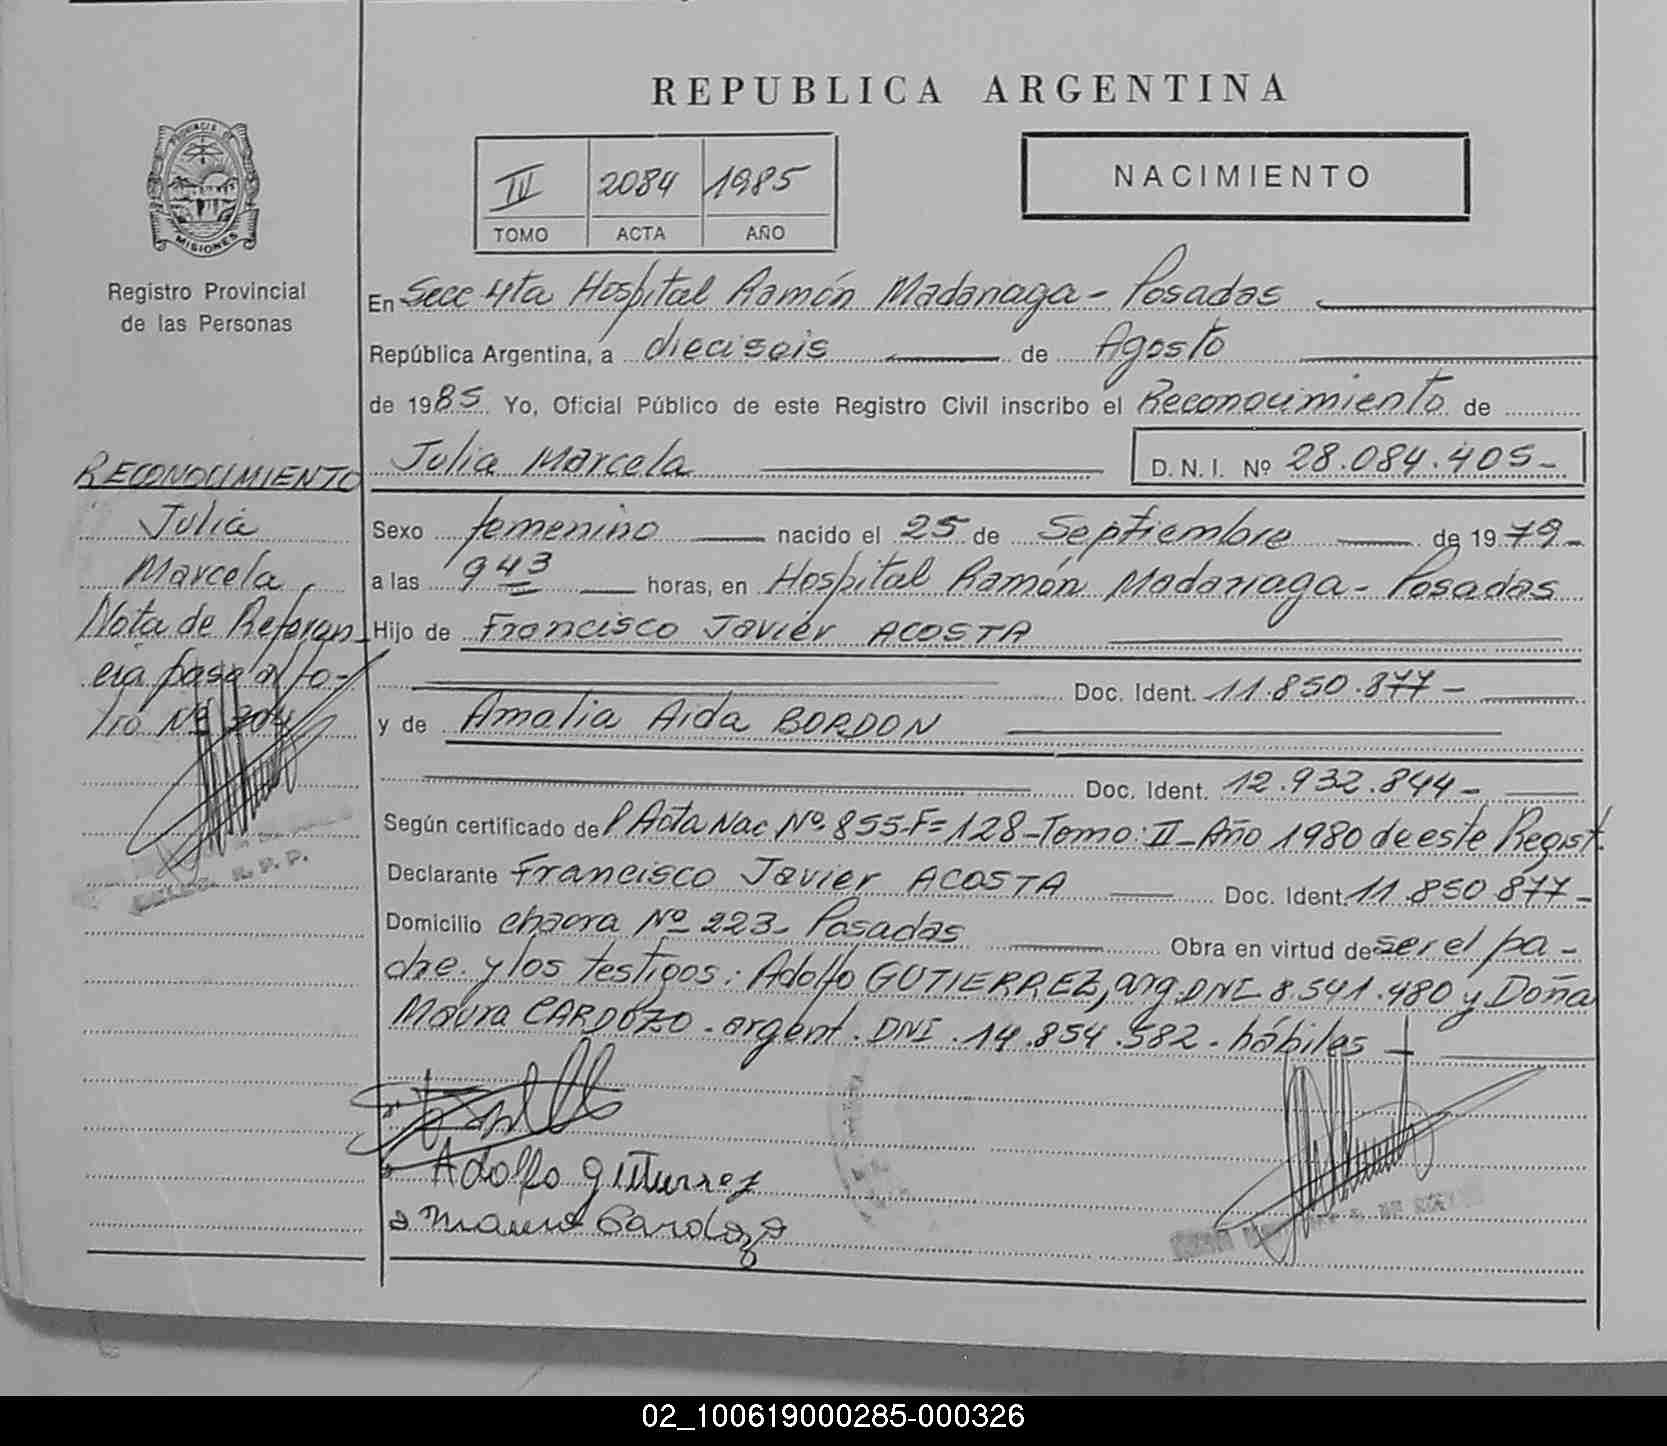 REPUBLICA ARGENTINA
PROVINCIA DE
MISIONES
Registro Provincial
de las Personas
III 2084 1985
TOMO ACTA AÑO
NACIMIENTO
En Secc 4ta Hospital Ramón Madariaga - Posadas
República Argentina, a dieciseis de Agosto
de 1985 Yo, Oficial Público de este Registro Civil inscribo el Reconocimiento de
Julia Marcela D. N. I. Nº 28.084.405-
Sexo femenino nacido el 25 de Septiembre de 1979-
a las 9 43 horas, en Hospital Ramón Madariaga - Posadas
Hijo de Francisco Javier ACOSTA
Doc. Ident. 11.850.877-
y de Amalia Aida BORDON
Doc. Ident. 12.932.844-
Según certificado de P Acta Nac Nº 855-F= 128-Tomo: II-Año 1980 de este Regist.
Declarante Francisco Javier ACOSTA Doc. Ident. 11.850 877-
Domicilio chacra Nº 223- Posadas Obra en virtud de ser el pa-
dre. y los testigos: Adolfo GUTIERREZ, arg. DNI 8.541.480 y Doña
Maura CARDOZO - argent. DNI. 14.854.582 - hábiles
Adolfo gutierrez
Maura Cardozo
RECONOCIMIENTO
Julia
Marcela
Nota de Referen-
cia pasa al fo-
lio Nº 304
R. P. P.
02_100619000285-000326